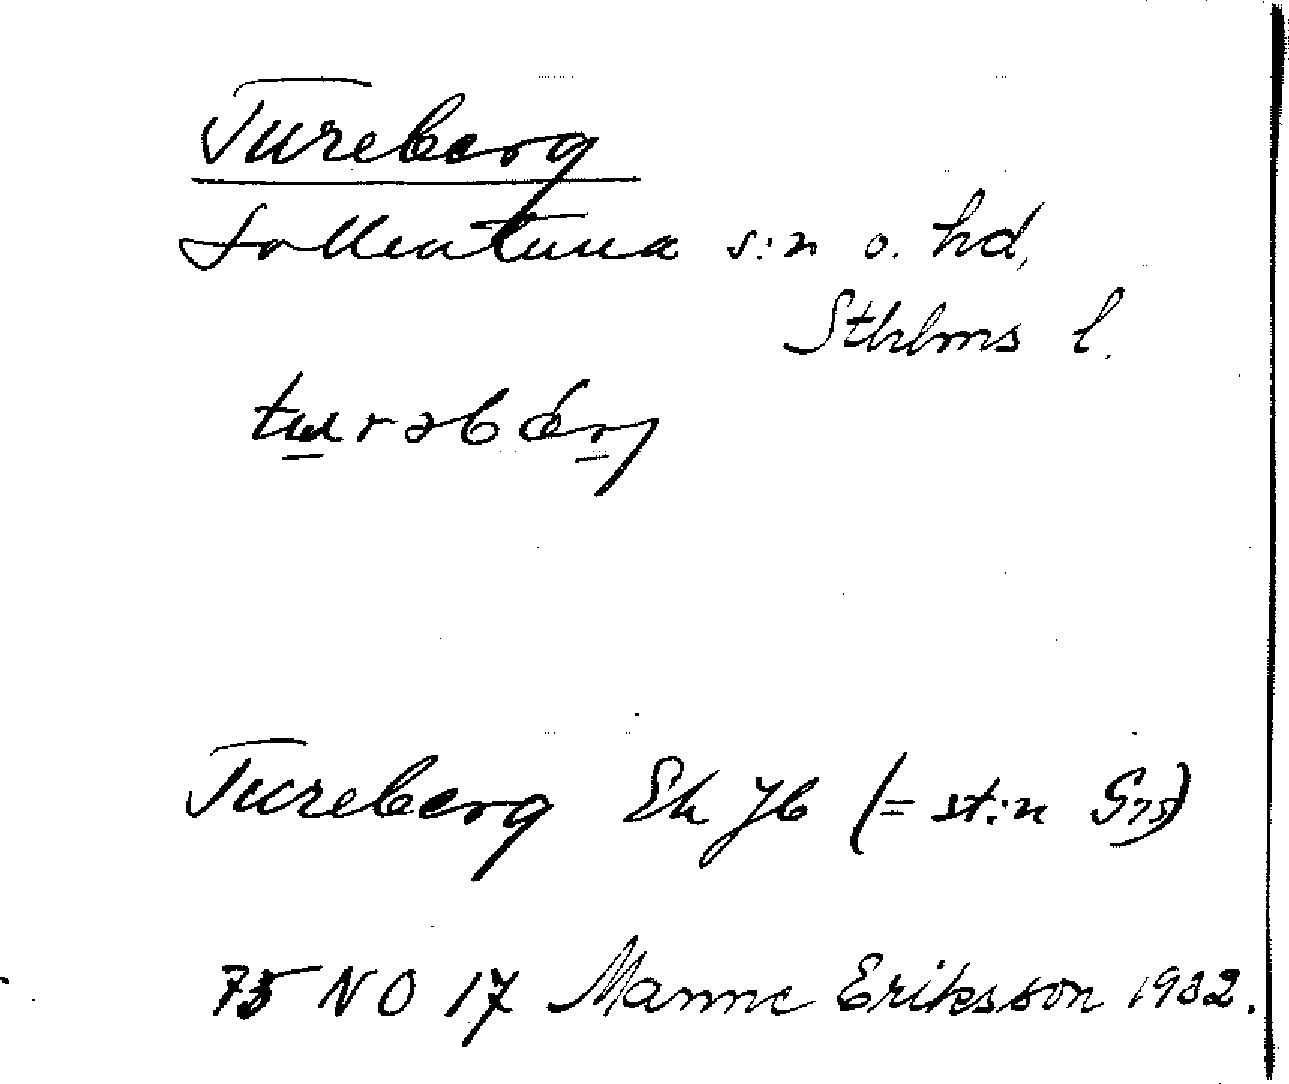 Tureberg
Sollentuna s:n o. hd,
Sthlms l.
Tureberg Ek Jb (= st:n Grs)
75 NO 17 Manne Eriksson 1932.